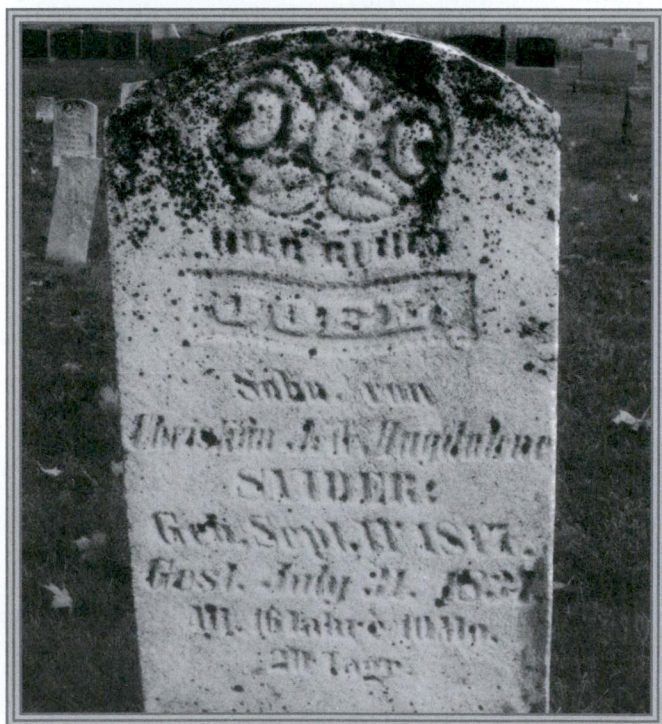 HIER RUHET
JOEL.
Sohn. von
Christian & Magdalene
SNIDER:
Geb. Sept. 11 1817.
Gest. July 31. 1834.
Alt. 16 Jahre 10 Mo.
20 Tage